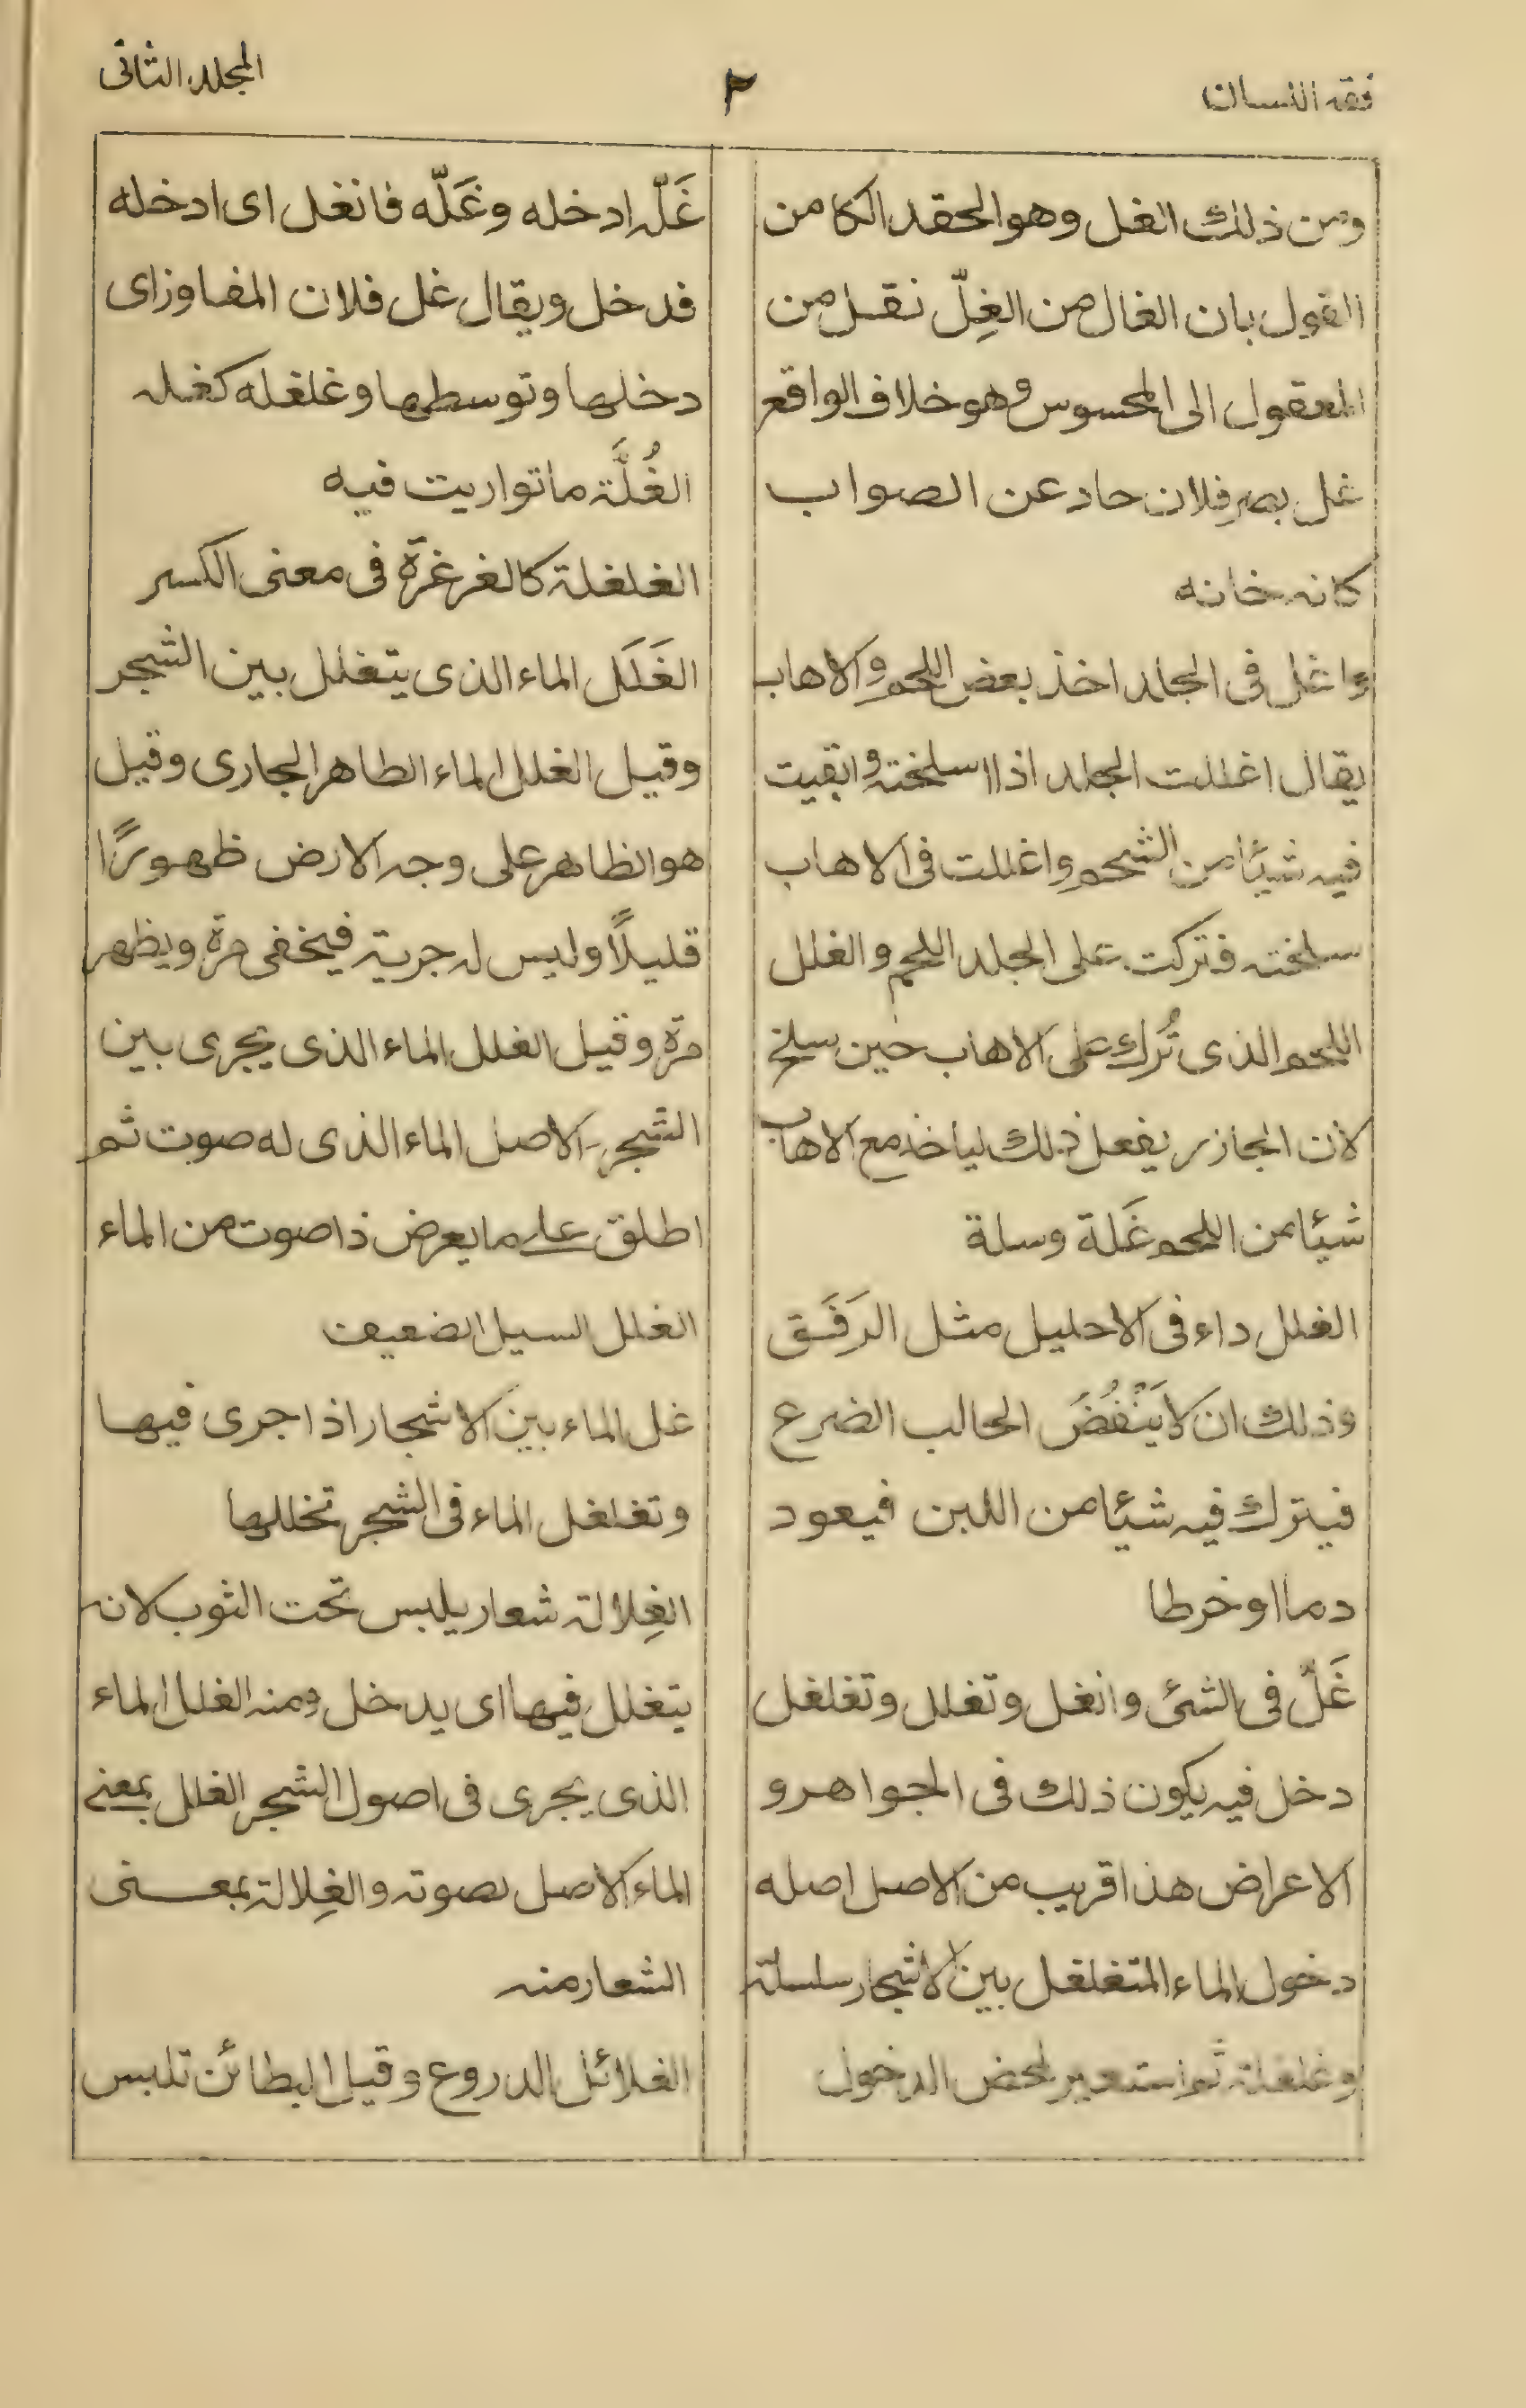 فقه اللسان
٢
المجلد الثانى
ومن ذلك الغل وهو الحقد الكامن
القول بان الغال من الغِلّ نقل من
المعقول الى المحسوس وهو خلاف الواقع
غل بصر فلان حاد عن الصواب
كانه خانه
واغل فى الجلد اخذ بعض اللحم والاهاب
يقال اغللت الجلد اذا اسلخته وابقيت
فيه شيئا من الشحم واغللت فى الاهاب
سلخته فتركت على الجلد اللحم والغلل
اللحم الذى تُرك على الاهاب حين سلخ
لان الجازر يفعل ذلك لياخذ مع الاهاب
شيئا من اللحم غَلة وسلة
الغلل داء فى الاحليل مثل الرَفَق
وذلك ان لا يَنْفُضَ الحالب الضرع
فيترك فيه شيئا من اللبن فيعود
دما او خرطا
غَلّ فى الشئ وانغل وتغلل وتغلغل
دخل فيه يكون ذلك فى الجواهر و
الاعراض هذا قريب من الاصل اصله
دخول الماء المتغلغل بين الاشجار سلسلة
وغلغلة ثم استعير لمحض الدخول
غَلّه ادخله وغَلّه فانغل اى ادخله
فدخل ويقال غل فلان المفاوز اى
دخلها وتوسطها وغلغله كغله
الغُلَّة ما تواريت فيه
الغلغلة كالغرغرة فى معنى الكسر
الغَلَل الماء الذى يتغلل بين الشجر
وقيل الغلل الماء الطاهر الجارى وقيل
هو الظاهر على وجه الارض ظهورًا
قليلًا وليس له جرية فيخفى مرة ويظهر
مرة وقيل الغلل الماء الذى يجرى بين
الشجر الاصل الماء الذى له صوت ثم
اطلق على ما يعرض ذا صوت من الماء
الغلل السيل الضعيف
غل الماء بين الاشجار اذا جرى فيها
وتغلغل الماء فى الشجر تخللها
الغِلالة شعار يلبس تحت الثوب لانه
يتغلل فيها اى يدخل ومنه الغلل الماء
الذى يجرى فى اصول الشجر الغلل بمعنى
الماء الاصل لصوته والغِلالة بمعنى
الشعار منه
الغلائل الدروع وقيل البطائن تلبس